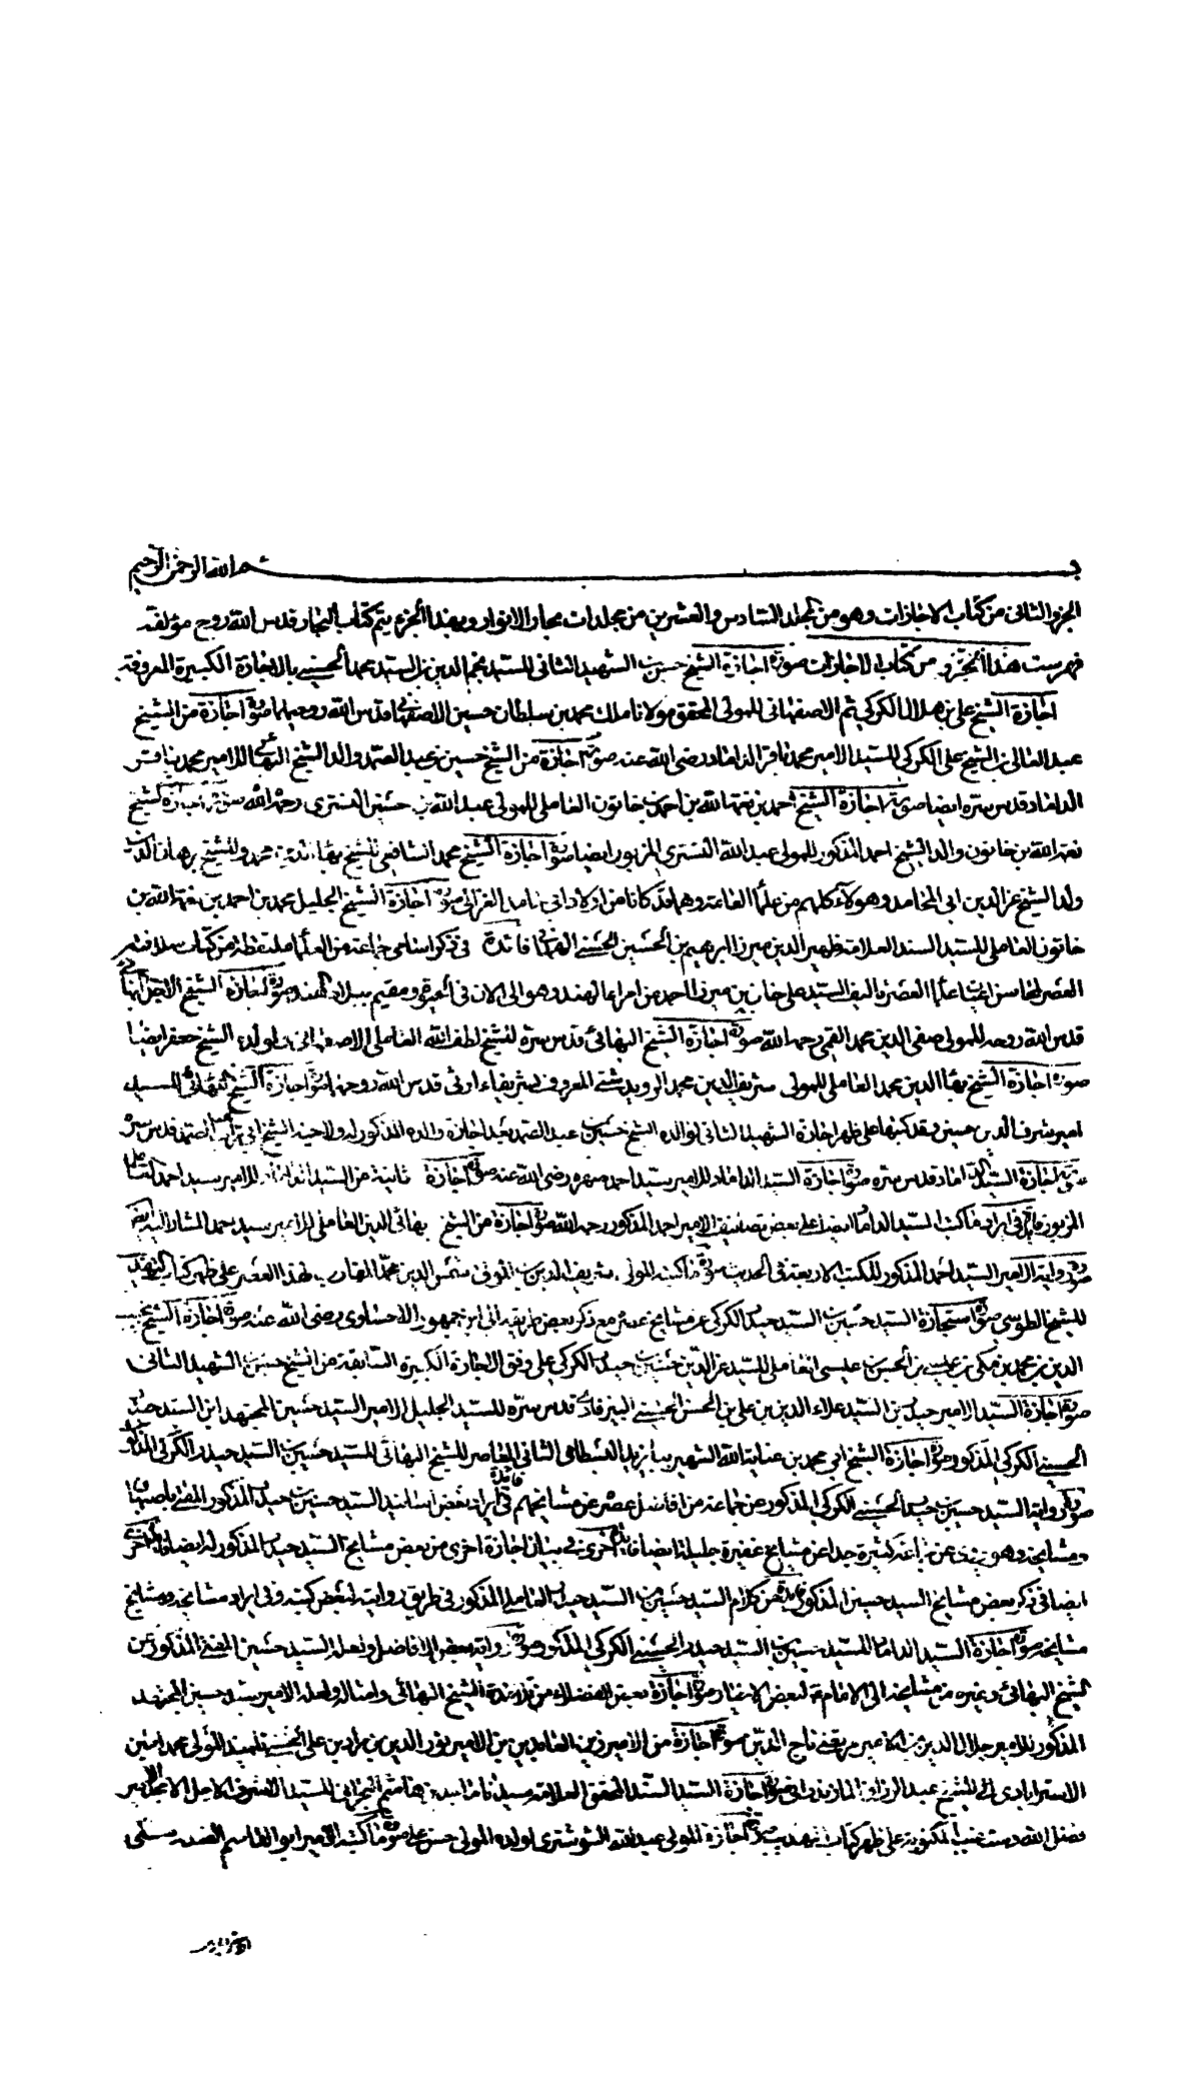 بسم الله الرحمن الرحيم
الجزء الثاني من كتاب الاجازات وهو من المجلد السادس والعشرين من مجلدات بحار الانوار وبهذا الجزء يتم كتاب البحار قدس الله روح مؤلفه
فهرست هذا الجزء من كتاب الاجازات صورة اجازة الشيخ حسن بن الشهيد الثاني للسيد نجم الدين بن السيد محمد الحسيني بالاجازة الكبيرة المعروفة
اجازة الشيخ علي بن هلال الكركي ثم الاصفهاني للمولى المحقق مولانا ملك محمد بن سلطان حسين الاصفهاني قدس الله روحيهما صورة اجازة من الشيخ
عبد العالي بن الشيخ علي الكركي للسيد الامير محمد باقر الداماد رضى الله عنه صورة اجازة من الشيخ حسين بن عبد الصمد والد الشيخ البهائي للامير محمد باقر
الداماد قدس سره ايضا صورة اجازة الشيخ احمد بن نعمة الله بن احمد بن خاتون العاملي للمولى عبد الله بن حسين التستري رحمه الله صورة اجازة الشيخ
نعمة الله بن خاتون والد الشيخ احمد المذكور للمولى عبد الله التستري المزبور ايضا صورة اجازة الشيخ محمد الشافعي للشيخ بهاء الدين محمد وللشيخ برهان الدين
ولد الشيخ عز الدين ابي المحامد وهولاء كلهم من علماء العامة وهما قد كانا من اولاد ابي حامد الغزالي صورة اجازة الشيخ الجليل محمد بن احمد بن نعمة الله بن
خاتون العاملي للسيد السند العلامة ظهير الدين ميرزا ابرهيم بن الحسين الحسني الهمداني فائدة في ذكر اسامي جماعة من العلماء ملتقطة من كتاب سلافة
العصر لمحاسن اعيان علماء العصر تاليف السيد علي خان بن ميرزا احمد من امراء الهند وهو الى الان في الحيوة ومقيم ببلاد الهند صورة اجازة الشيخ الاجل البهائي
قدس الله روحه للمولى صفي الدين محمد القمي رحمه الله صورة اجازة الشيخ البهائي قدس سره للشيخ لطف الله العاملي الاصفهاني ولولده الشيخ جعفر ايضا
صورة اجازة الشيخ بهاء الدين محمد العاملي للمولى شريف الدين محمد الرويدشتي المعروف بشريفا قدس الله روحهما صورة اجازة الشيخ البهائي للسيد
امير شرف الدين حسين وقد كتبها على ظهر اجازة الشهيد الثاني لوالده الشيخ حسين بن عبد الصمد بعد اجازة والده المذكور له ولاخيه الشيخ ابي تراب عبد الصمد قدس سره
صورة اجازة السيد الداماد قدس سره صورة اجازة السيد الداماد للامير سيد احمد صهره رضى الله عنه صورة اجازة ثانية من السيد الداماد للامير سيد احمد العاملي
المزبور فائدة في ايراد ما كتب السيد الداماد ايضا على بعض تصانيف الامير احمد المذكور رحمه الله صورة اجازة من الشيخ بهائي الدين العاملي للامير سيد احمد المشار اليه ايضا
صورة رواية الامير السيد احمد المذكور للكتب الاربعة في الحديث صورة ما كتبه المولى شريف الدين شمس الدين محمد على ظهر كتاب التهذيب
للشيخ الطوسي صورة استجازة السيد حسين بن السيد حيدر الكركي عن مشايخ عشر مع ذكر بعض طريقه الى ابن جمهور الاحساوي رضى الله عنه صورة اجازة الشيخ نجيب
الدين بن محمد بن مكي بن عيسى بن الحسن بن عيسى العاملي للسيد عز الدين حسين بن حيدر الكركي على وفق الاجازة الكبيرة السابقة من الشيخ حسن بن الشهيد الثاني
صورة اجازة السيد الامير حيدر بن السيد علاء الدين بن علي بن الحسن الحسيني البيرقادي قدس سره للسيد الجليل الامير السيد حسين المجتهد ابن السيد حيدر
الحسيني الكركي المذكور صورة اجازة الشيخ ابي محمد بن عناية الله الشهير ببايزيد البسطامي الثاني المعاصر للشيخ البهائي للسيد حسين بن السيد حيدر الكركي المذكور
صورة رواية السيد حسين بن حيدر الحسيني الكركي المذكور عن جماعة من افاضل عصره عن مشايخهم فائدة في ايراد بعض اسانيد السيد حسين بن حيدر المذكور المفتي باصبهان
ومشايخه وهو عن جماعة كثيرة جدا عن مشايخ غفيرة جليلة ايضا فائدة اخرى في بيان اجازة اخرى من بعض مشايخ السيد حيدر المذكور له ايضا فائدة اخرى
ايضا في ذكر بعض مشايخ السيد حسين المذكور فائدة من كلام السيد حسين بن السيد حيدر العاملي المذكور في طريق روايته لبعض كتبه وفي ايراد مشايخه ومشايخ
مشايخه صورة اجازة السيد الداماد للسيد حسين بن السيد حيدر الحسيني الكركي المذكور صورة رواية بعض الافاضل ولعله السيد حسين المفتي المذكور عن
الشيخ البهائي وغيره من مشايخه الى الامام لبعض الاخبار صورة اجازة بعض الفضلاء من تلامذة الشيخ البهائي وامثاله ولعله الامير سيد حسين المجتهد
المذكور للامير جلال الدين بن الامير مرتضى تاج الدين صورة اجازة من الامير زين العابدين بن الامير نور الدين بن مراد بن علي الحسيني تلميذ المولى محمد امين
الاسترابادي الى الشيخ عبد الرزاق المازندراني صورة اجازة السيد السند المحقق العلامة سيد ماجد بن هاشم البحراني للسيد الاجل الامجد الامير
فضل الله دست غيب المكتوبة على ظهر كتاب التهذيب صورة اجازة المولى عبد الله الشوشتري لولده المولى حسن علي صورة ما كتبه الامير ابو القاسم الفندرسكي